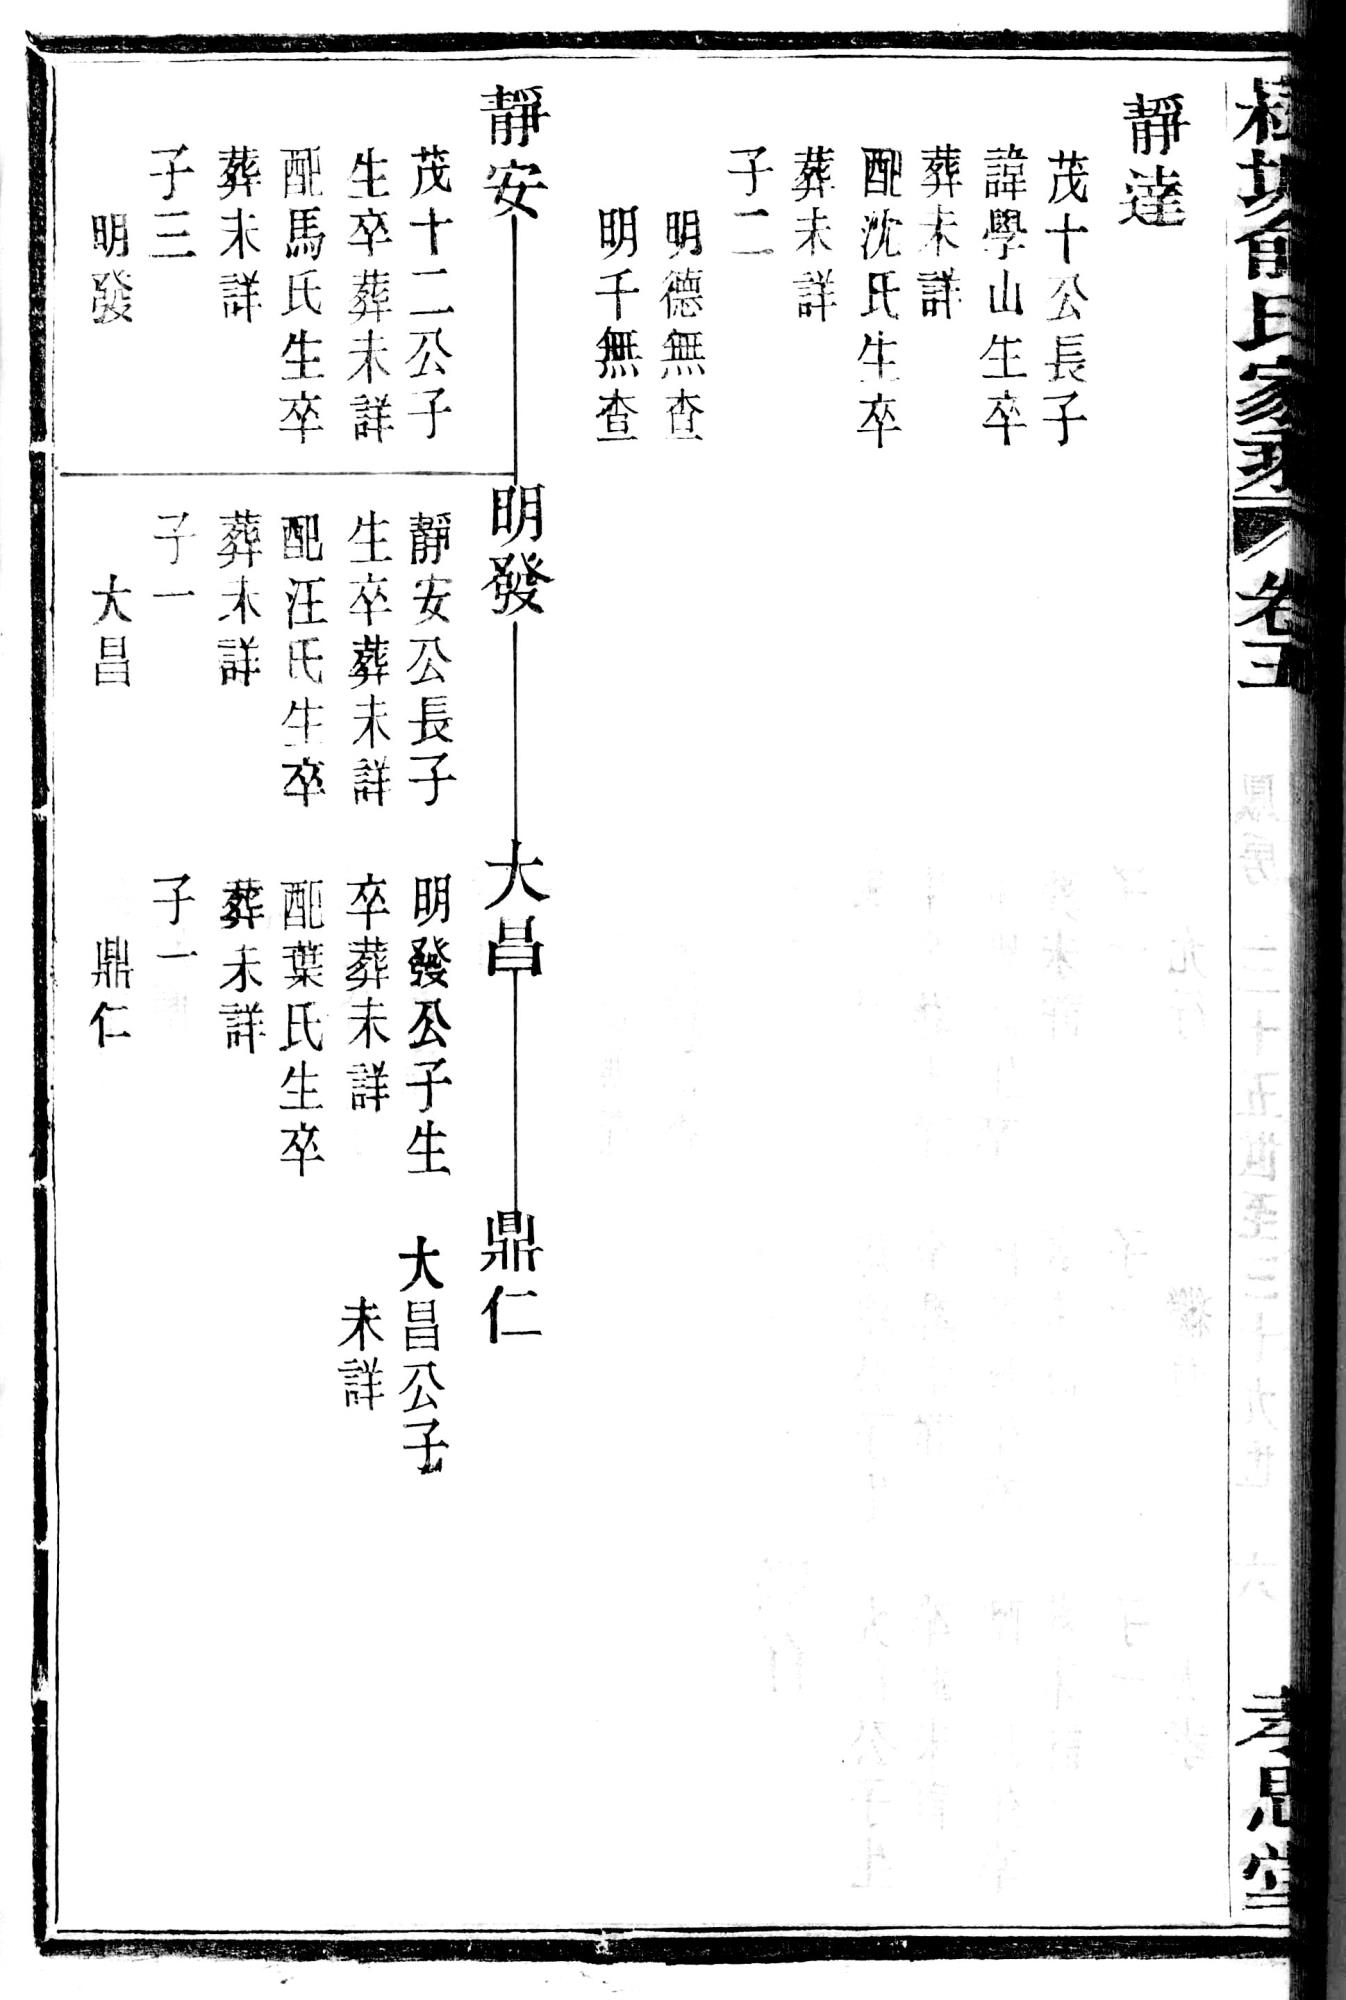 氏家
卷五
鳳房 三十五世至三十九世 六
孝思堂
靜達
茂十公長子
諱學山生卒
葬未詳
配沈氏生卒
葬未詳
子二
明德無查
明千無查
靜安
茂十二公子
生卒葬未詳
配馬氏生卒
葬未詳
子三
明發
明發
靜安公長子
生卒葬未詳
配汪氏生卒
葬未詳
子一
大昌
大昌
明發公子生
卒葬未詳
配葉氏生卒
葬未詳
子一
鼎仁
鼎仁
大昌公子
未詳